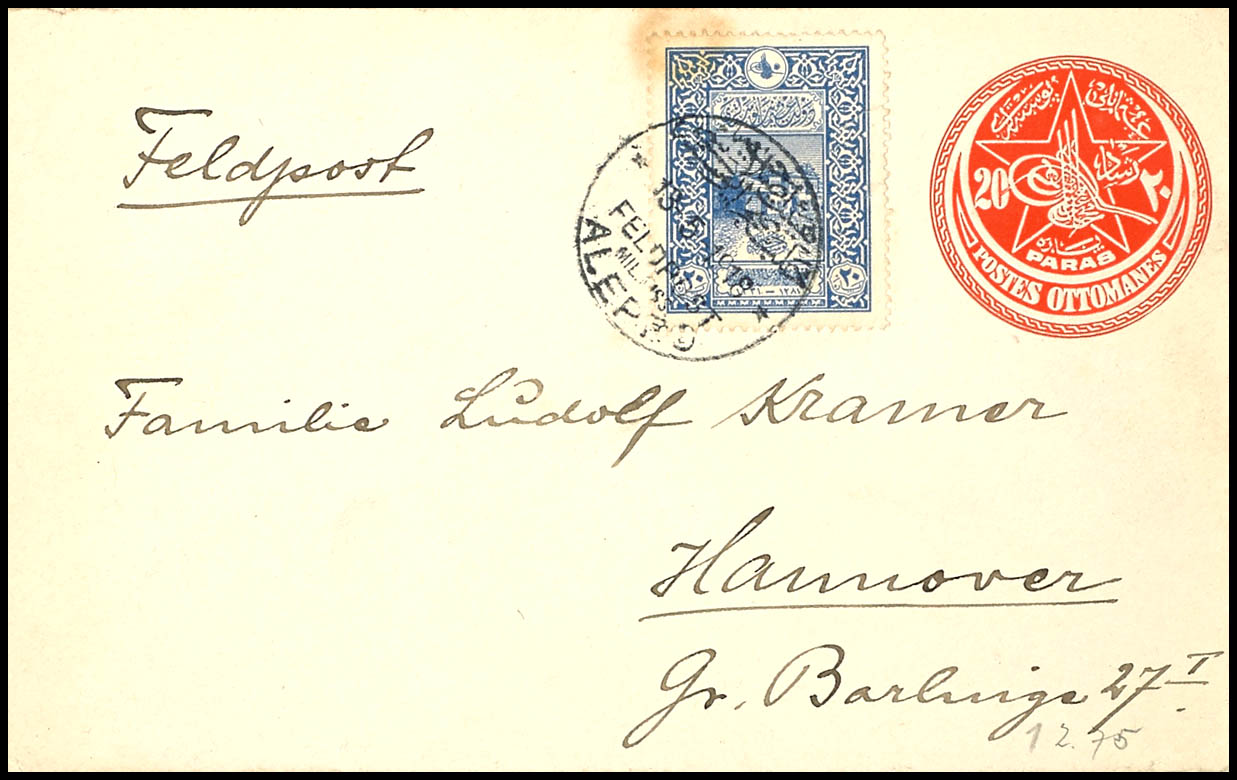 Feldpost
Familie Ludolf Kramer
Hannover
Gr. Barlinge 27 I
12.75
FELDPOST
MIL. MISS.
ALEPPO
٢٠ ٢٠
20 ٢٠
PARAS
POSTES OTTOMANES